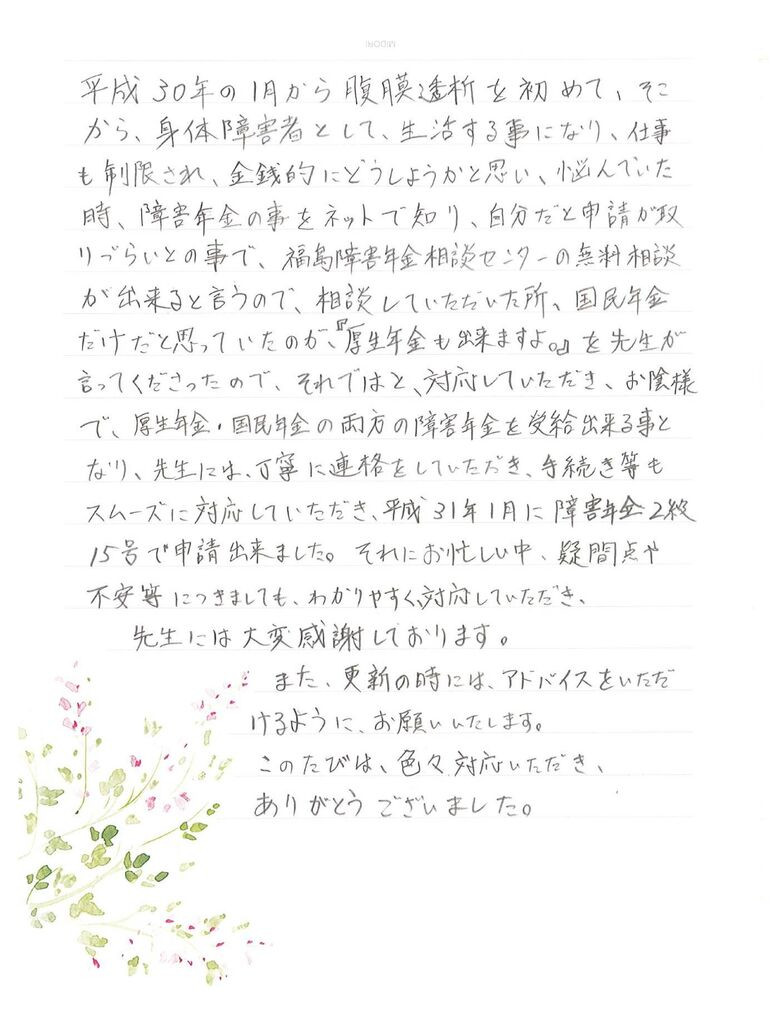 平成30年の1月から腹膜透析を初めて、そこ
から、身体障害者として、生活する事になり、仕事
も制限され、金銭的にどうしようかと思い、悩んでいた
時、障害年金の事をネットで知り、自分だと申請が取
りづらいとの事で、福島障害年金相談センターの無料相談
が出来ると言うので、相談していただいた所、国民年金
だけだと思っていたのが、『厚生年金も出来ますよ。』を先生が
言ってくださったので、それではと、対応していただき、お陰様
で、厚生年金・国民年金の両方の障害年金を受給出来る事と
なり、先生には、丁寧に連格をしていただき、手続き等も
スムーズに対応していただき、平成31年1月に障害年金2級
15号で申請出来ました。それにお忙しい中、疑問点や
不安等につきましても、わかりやすく、対応していただき、
先生には大変感謝しております。
また、更新の時には、アドバイスをいただ
けるように、お願いいたします。
このたびは、色々対応いただき、
ありがとうございました。
MIDORI